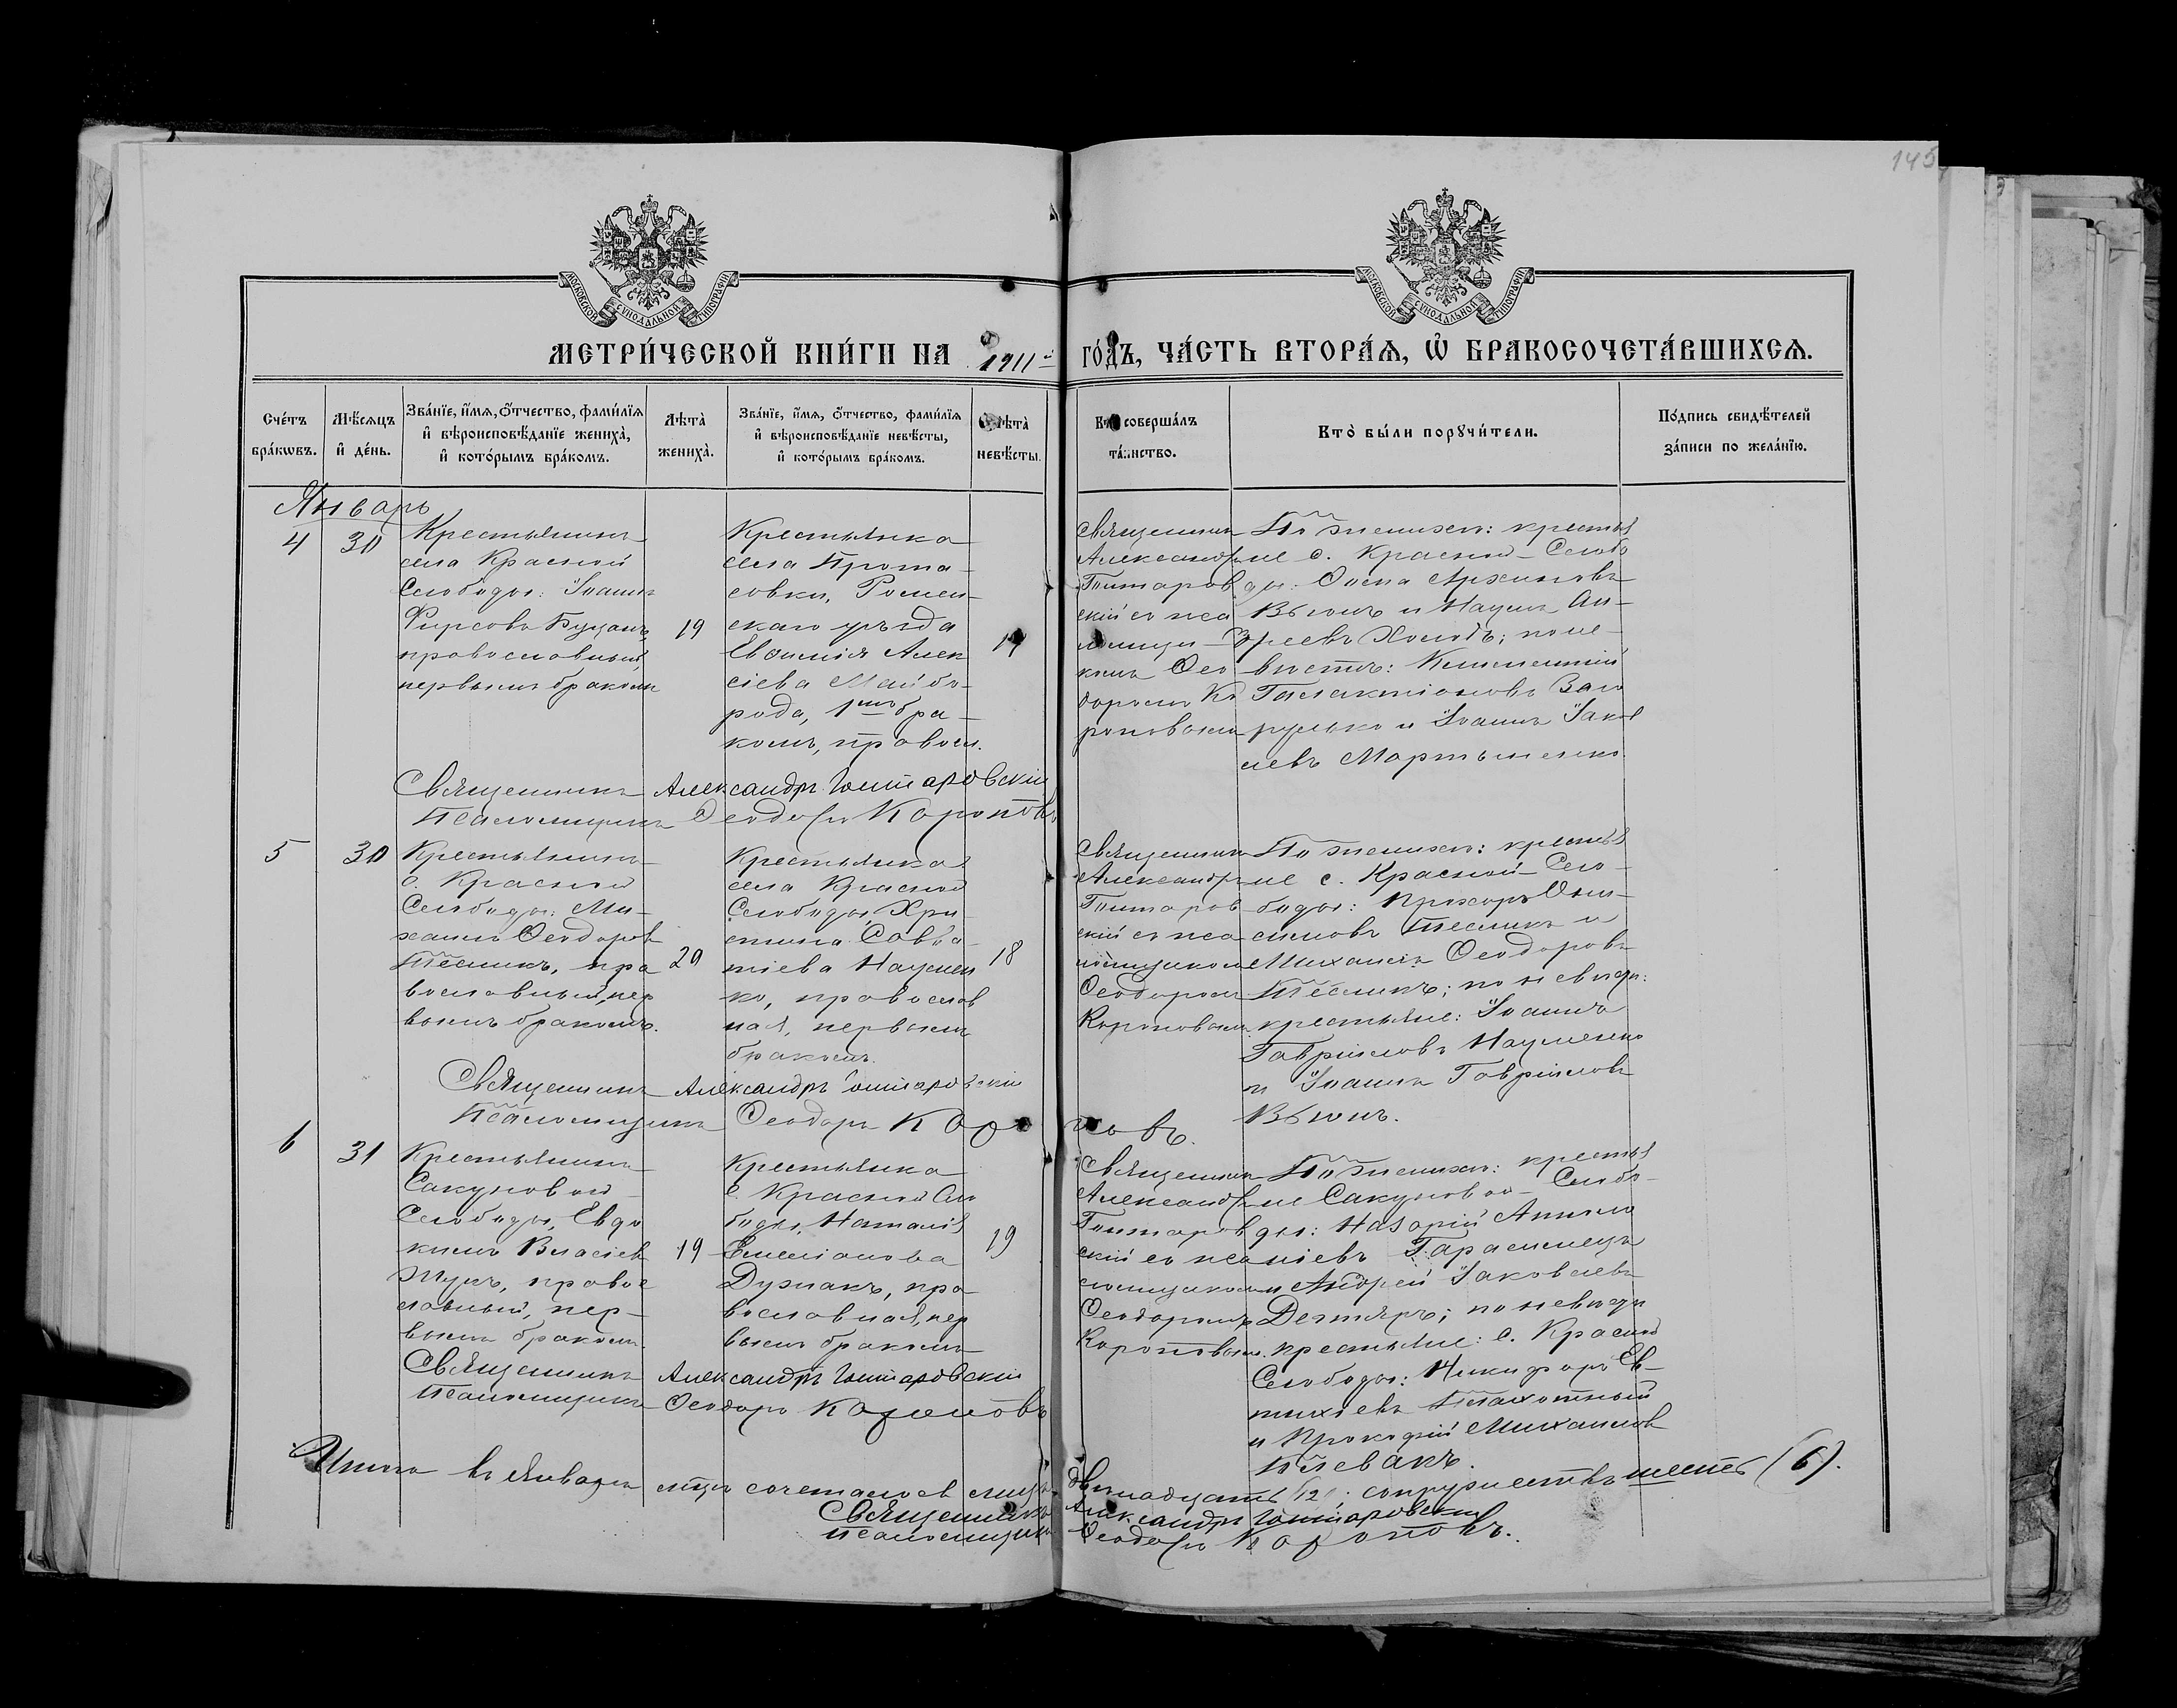 145
МОСКОВСКОЙ СѴНОДАЛЬНОЙ ТИПОГРАФІИ
МОСКОВСКОЙ СѴНОДАЛЬНОЙ ТИПОГРАФІИ
МЕТРИ́ЧЕСКОЙ КНИ́ГИ НА 1911 й ГО́ДЪ, ЧА́СТЬ ВТОРА́Ѧ, Ѽ БРАКОСОЧЕТА́ВШИХСѦ.
Сче́тъ бра́кѡвъ.
Мѣ́сѧцъ и҆ де́нь.
Зва́нїе, и҆́мѧ, ѻ҆́тчество, фами́лїѧ
и҆ вѣроисповѣ́данїе жениха̀,
и҆ кото́рымъ бра́комъ.
Лѣта̀ жениха̀.
Зва́нїе, и҆́мѧ, ѻ҆́тчество, фами́лїѧ
и҆ вѣроисповѣ́данїе невѣ́сты,
и҆ кото́рымъ бра́комъ.
Лѣта̀ невѣ́сты.
Кто̀ соверша́лъ
та́инство.
Кто̀ бы́ли порꙋчи́тели.
По́дпись свидѣ́телей
за́писи по жела́нїю.
Январь
4
30
Крестьянинъ
села Красной
Слободы: Іоаннъ
Фирсовъ Буцанъ,
православный,
первымъ бракомъ
19
Крестьянка
села Прота-
совки, Ромен-
скаго уѣзда
Евфимія Алек
сіева Майбо-
рода, 1мъ бра-
комъ, правосл.
Священникъ
Александръ
скій съ пса
ломщи-
комъ Ѳео
доромъ Ко
роповымъ
По женихѣ: крестья
не с. Красной Слобо
ды: Осипъ Архиповъ
Вьюнъ и Наумъ Ан-
дреевъ Холодъ; по не-
вѣстѣ:
Галактіоновъ Заго
рулько и Іоаннъ Іаков
левъ Мартыненко.
Священникъ Александръ
Псаломщикъ Ѳеодоръ Короповъ
5
30
Крестьянинъ
с. Красной
Слободы: Ми-
хаилъ Ѳеодоровъ
Тесликъ, пра
вославный, пер
вымъ бракомъ.
20
Крестьянка
села Красной
Слободы, Хри-
стина Савва-
тіева Наумен
ко, православ
ная, первымъ
бракомъ.
18
Священникъ
Александръ
скій съ пса
ломщикомъ
Ѳеодоромъ
Короповымъ
По женихѣ: крестья
не с. Красной Сло-
боды: Прохоръ Они-
симовъ Тесликъ и
Михаилъ Ѳеодоровъ
Тесликъ; по невѣстѣ:
крестьяне: Іоаннъ
Гавріиловъ Науменко
и Іоаннъ Гавріиловъ
Вьюнъ.
Священникъ Александръ
Псаломщикъ Ѳеодоръ Короповъ.
6
31
Крестьянинъ
Сакуновой
Слободы, Евдо
кимъ Власіевъ
Жукъ, правос
лавный, пер-
вымъ бракомъ.
19
Крестьянка
с. Красной Сло
боды, Наталія
Емеліанова
Дужакъ, пра
вославная, пер
вымъ бракомъ
19
Священникъ
Александръ
скій съ пса
ломщикомъ
Ѳеодоромъ
Короповымъ.
По женихѣ: крестья
не Сакуновой Слобо-
ды: Назарій
Гарасимецъ
и Андрей Іаковлевъ
Дегтяръ; по невѣстѣ
крестьяне: с. Красной
Слободы: Никифоръ Ев-
тихіевъ
и Прокофій Михаиловъ
Плевакъ.
Священникъ Александръ
Псаломщикъ Ѳеодоръ Короповъ
Итого въ Январѣ мцѣ сочеталось лицъ двѣнадцать (12) супружествъ шесть (6).
Священникъ Александръ
Псаломщикъ Ѳеодоръ Короповъ.